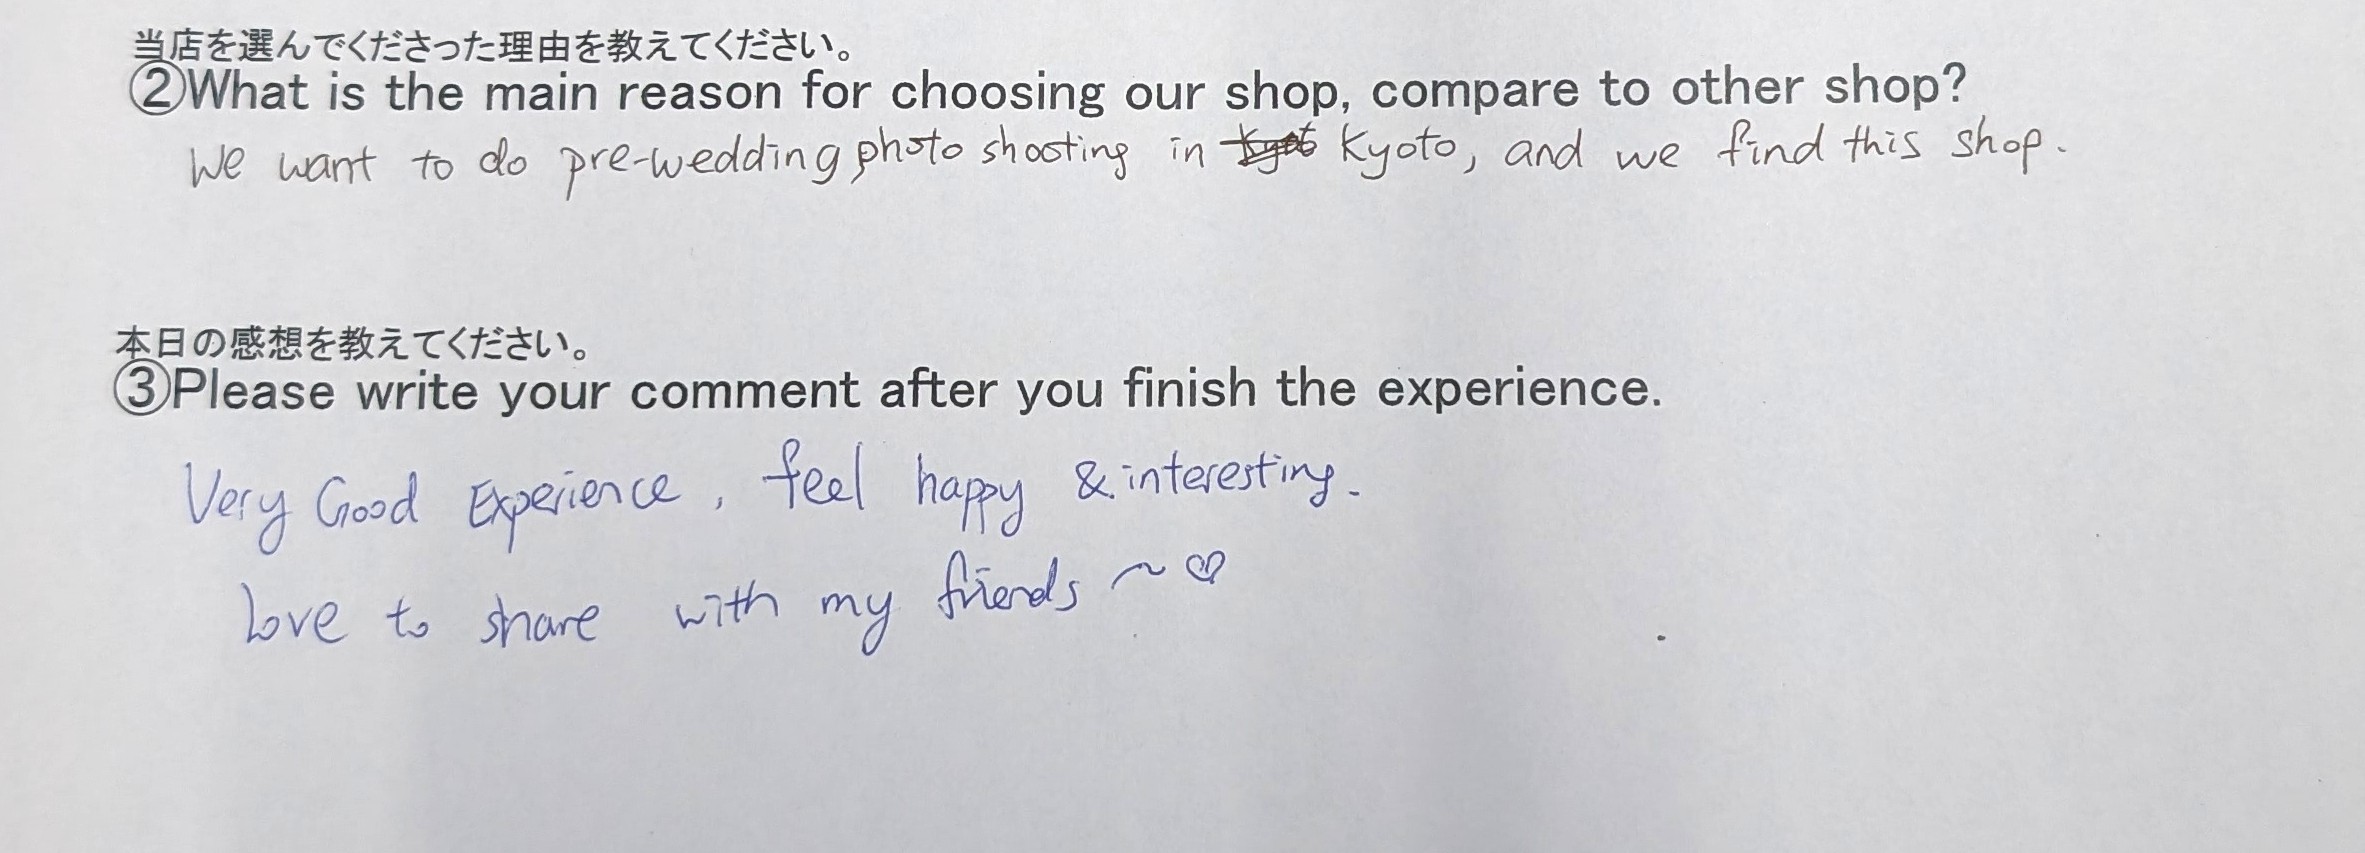 当店を選んでくださった理由を教えてください。
②What is the main reason for choosing our shop, compare to other shop?
We want to do pre-wedding photo shooting in Kyoto, and we find this shop.
本日の感想を教えてください。
③Please write your comment after you finish the experience.
Very Good Experience, feel happy & interesting.
Love to share with my friends ~ ♡